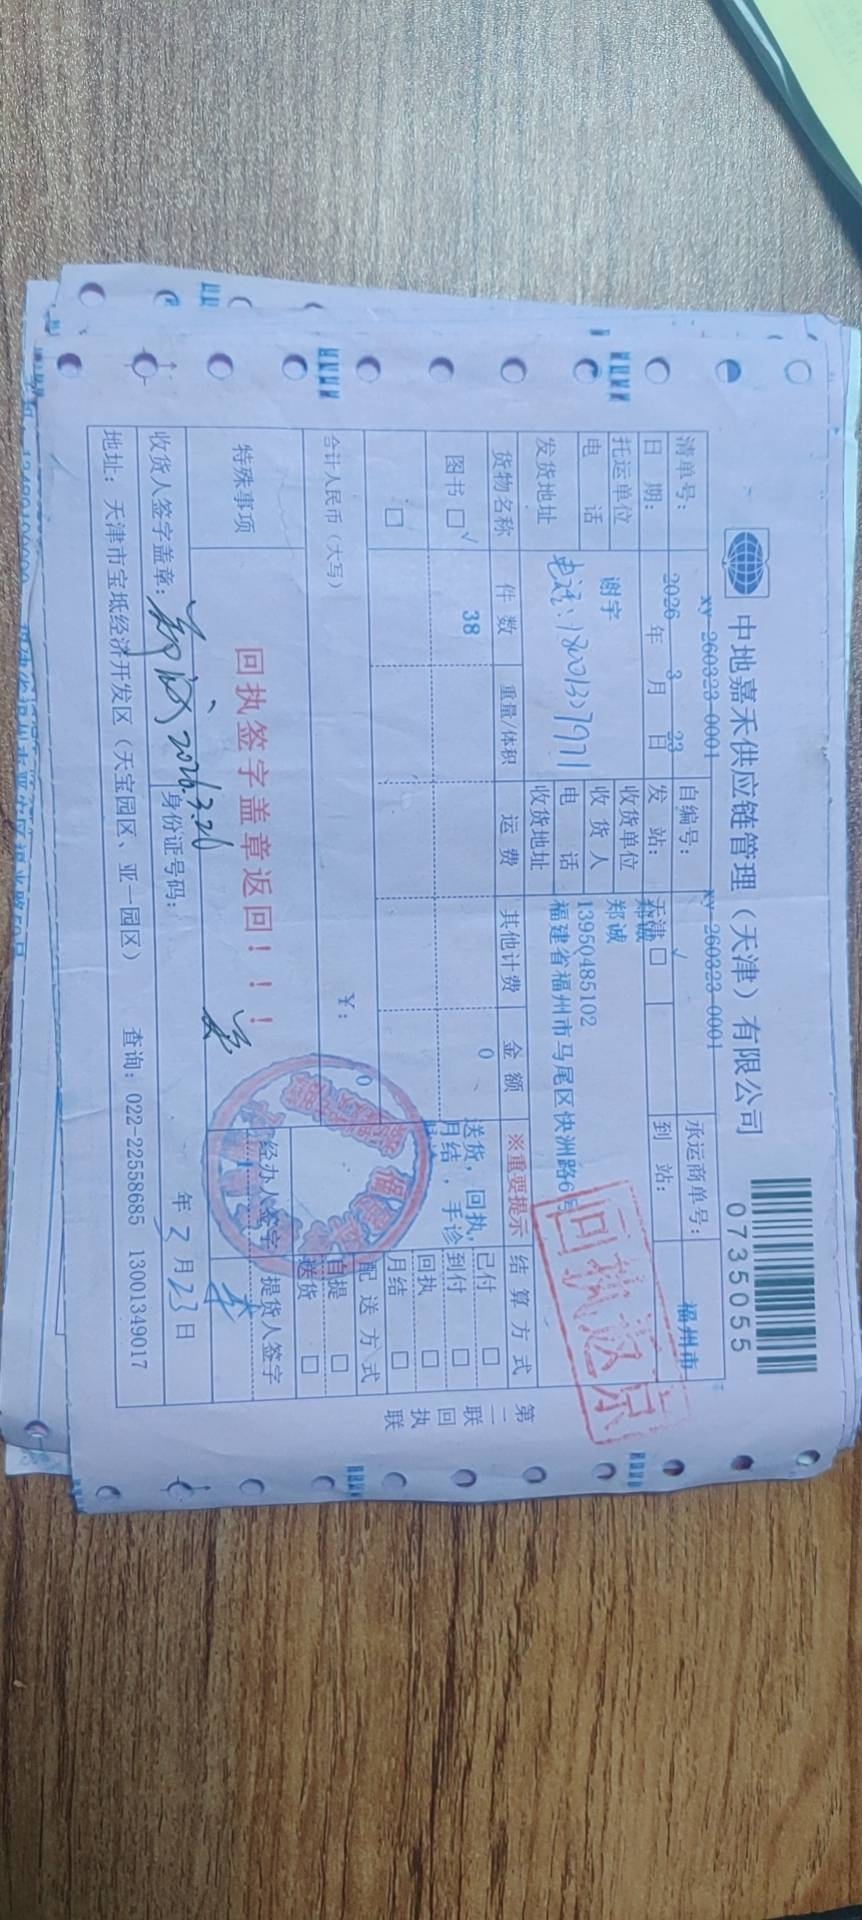 中地嘉禾供应链管理（天津）有限公司
0735055
清单号： XY-260323-0001 自编号： XY-260323-0001 承运商单号：
日 期： 2026 年 3 月 23 日 发 站： 天津 □ √ 到 站： 福州市
托运单位 谢宇 收货单位 郑诚
收 货 人 郑诚
电 话 电 话 13950485102
发货地址 电话：18001307971 收货地址 福建省福州市马尾区快洲路6号
回执返京
货物名称 件 数 重量/体积 运 费 其他计费 金 额 ※重要提示 结 算 方 式
图书 □ √ 38 0 送货，回执，
月结，手诊
已付 □
到付 □
回执 □
月结 □
□
合计人民币（大写） ¥： 0
配 送 方 式
自提 □
送货 □
特殊事项 回执签字盖章返回！！！
经办人签字 提货人签字
收货人签字盖章： 郑诚 2026.3.26 身份证号码： 年 3 月 23 日
地址： 天津市宝坻经济开发区（天宝园区、亚一园区） 查询： 022-22558685 13001349017
第二联 回执联